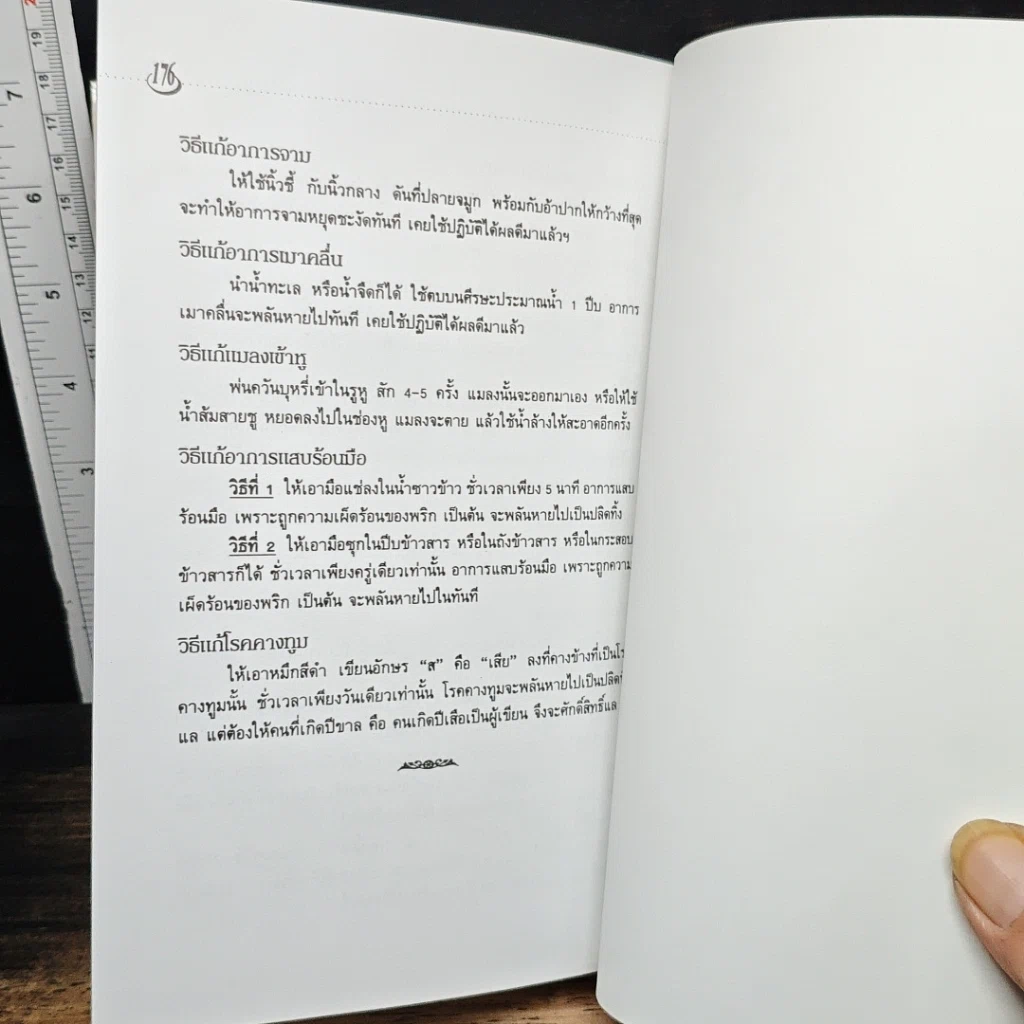 176
วิธีแก้อาการจาม
ให้ใช้นิ้วชี้ กับนิ้วกลาง ดันที่ปลายจมูก พร้อมกับอ้าปากให้กว้างที่สุด
จะทำให้อาการจามหยุดชะงัดทันที เคยใช้ปฏิบัติได้ผลดีมาแล้วฯ
วิธีแก้อาการเมาคลื่น
นำน้ำทะเล หรือน้ำจืดก็ได้ ใช้ตบบนศีรษะประมาณน้ำ 1 ปี๊บ อาการ
เมาคลื่นจะพลันหายไปทันที เคยใช้ปฏิบัติได้ผลดีมาแล้ว
วิธีแก้แมลงเข้าหู
พ่นควันบุหรี่เข้าในรูหู สัก 4-5 ครั้ง แมลงนั้นจะออกมาเอง หรือให้ใช้
น้ำส้มสายชู หยอดลงไปในช่องหู แมลงจะตาย แล้วใช้น้ำล้างให้สะอาดอีกครั้ง
วิธีแก้อาการแสบร้อนมือ
วิธีที่ 1 ให้เอามือแช่ลงในน้ำซาวข้าว ชั่วเวลาเพียง 5 นาที อาการแสบ
ร้อนมือ เพราะถูกความเผ็ดร้อนของพริก เป็นต้น จะพลันหายไปเป็นปลิดทิ้ง
วิธีที่ 2 ให้เอามือซุกในปีบข้าวสาร หรือในถังข้าวสาร หรือในกระสอบ
ข้าวสารก็ได้ ชั่วเวลาเพียงครู่เดียวเท่านั้น อาการแสบร้อนมือ เพราะถูกความ
เผ็ดร้อนของพริก เป็นต้น จะพลันหายไปในทันที
วิธีแก้โรคคางทูม
ให้เอาหมึกสีดำ เขียนอักษร “ส” คือ “เสีย” ลงที่คางข้างที่เป็น
คางทูมนั้น ชั่วเวลาเพียงวันเดียวเท่านั้น โรคคางทูมจะพลันหายไปเป็นปลิด
แล แต่ต้องให้คนที่เกิดปีขาล คือ คนเกิดปีเสือเป็นผู้เขียน จึงจะศักดิ์สิทธิ์แล
7
6
5
4
3
19
18
17
16
15
14
13
12
11